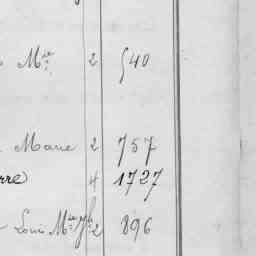 Mie 2 540
Marie 2 757
rre 4 1727
Louis Mie 2 896